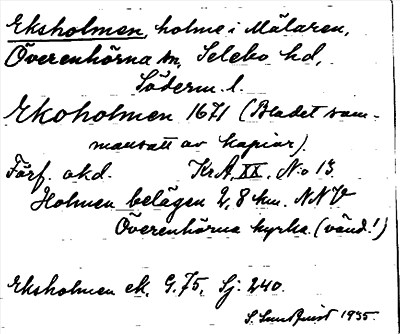 Eksholmen, holme i Mälaren,
Överenhörna sn, Selebo hd,
Söderm. l.
Ekoholmen 1671 (Bladet sam-
mansatt av kopior).
Förf. okd. Kr.A. XX. No 13.
Holmen belägen 2,8 km. NNV
Överenhörna kyrka. (vänd!)
Eksholmen ek. G.75, Sj. 240.
S. Sundquist 1935.